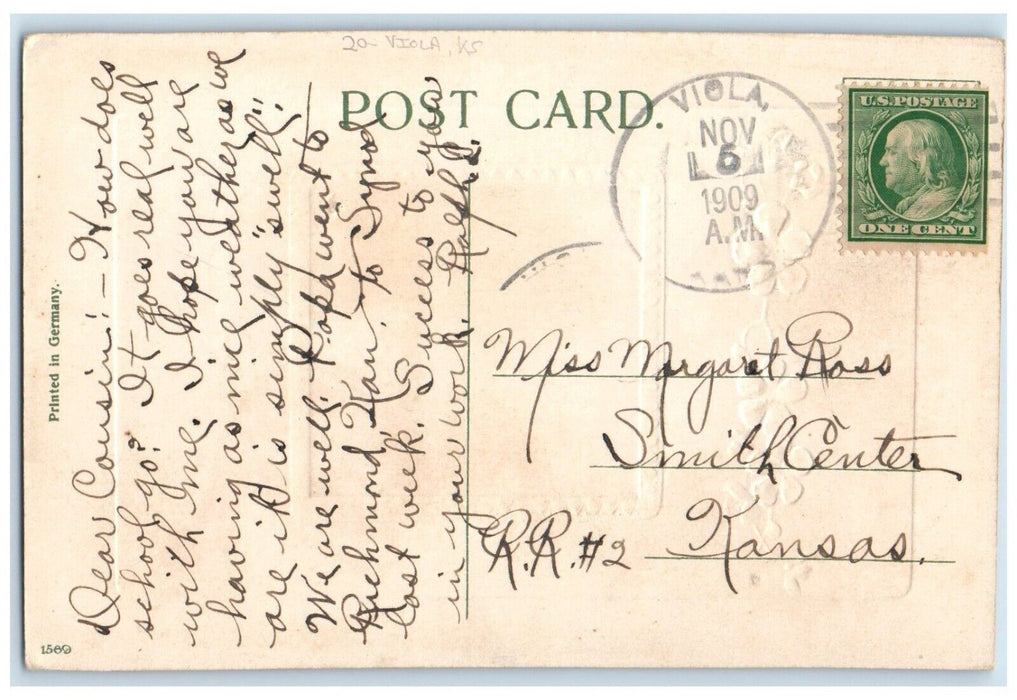 20- VIOLA, KS
POST CARD.
VIOLA,
NOV
6
1909
A.M.
U.S. POSTAGE
ONE CENT
Printed in Germany.
1569
Dear Cousin:- How does
school go? It goes real well
with me. I hope you are
having as nice weather as we
are it is simply "swell".
We are well. Papa went to
Richmond Kan. to Synod
last week. Success to you
in your work. Ralph R.
Miss Margaret Ross
Smith Center
R.R. #2 Kansas.